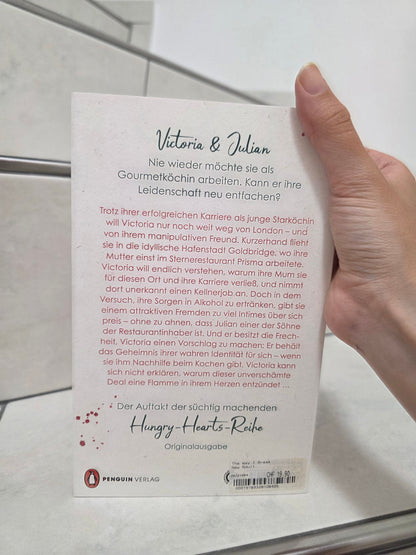 Victoria & Julian
Nie wieder möchte sie als
Gourmetköchin arbeiten. Kann er ihre
Leidenschaft neu entfachen?
Trotz ihrer erfolgreichen Karriere als junge Starköchin
will Victoria nur noch weit weg von London – und
von ihrem manipulativen Freund. Kurzerhand flieht
sie in die idyllische Hafenstadt Goldbridge, wo ihre
Mutter einst im Sternerestaurant Prisma arbeitete.
Victoria will endlich verstehen, warum ihre Mum sie
für diesen Ort und ihre Karriere verließ, und nimmt
dort unerkannt einen Kellnerjob an. Doch in dem
Versuch, ihre Sorgen in Alkohol zu ertränken, gibt sie
einem attraktiven Fremden zu viel Intimes über sich
preis – ohne zu ahnen, dass Julian einer der Söhne
der Restaurantinhaber ist. Und er besitzt die Frech-
heit, Victoria einen Vorschlag zu machen: Er behält
das Geheimnis ihrer wahren Identität für sich – wenn
sie ihm Nachhilfe beim Kochen gibt. Victoria kann
sich nicht erklären, warum dieser unverschämte
Deal eine Flamme in ihrem Herzen entzündet ...
Der Auftakt der süchtig machenden
Hungry-Hearts-Reihe
Originalausgabe
PENGUIN VERLAG
The Way I Break
CHF 19.90